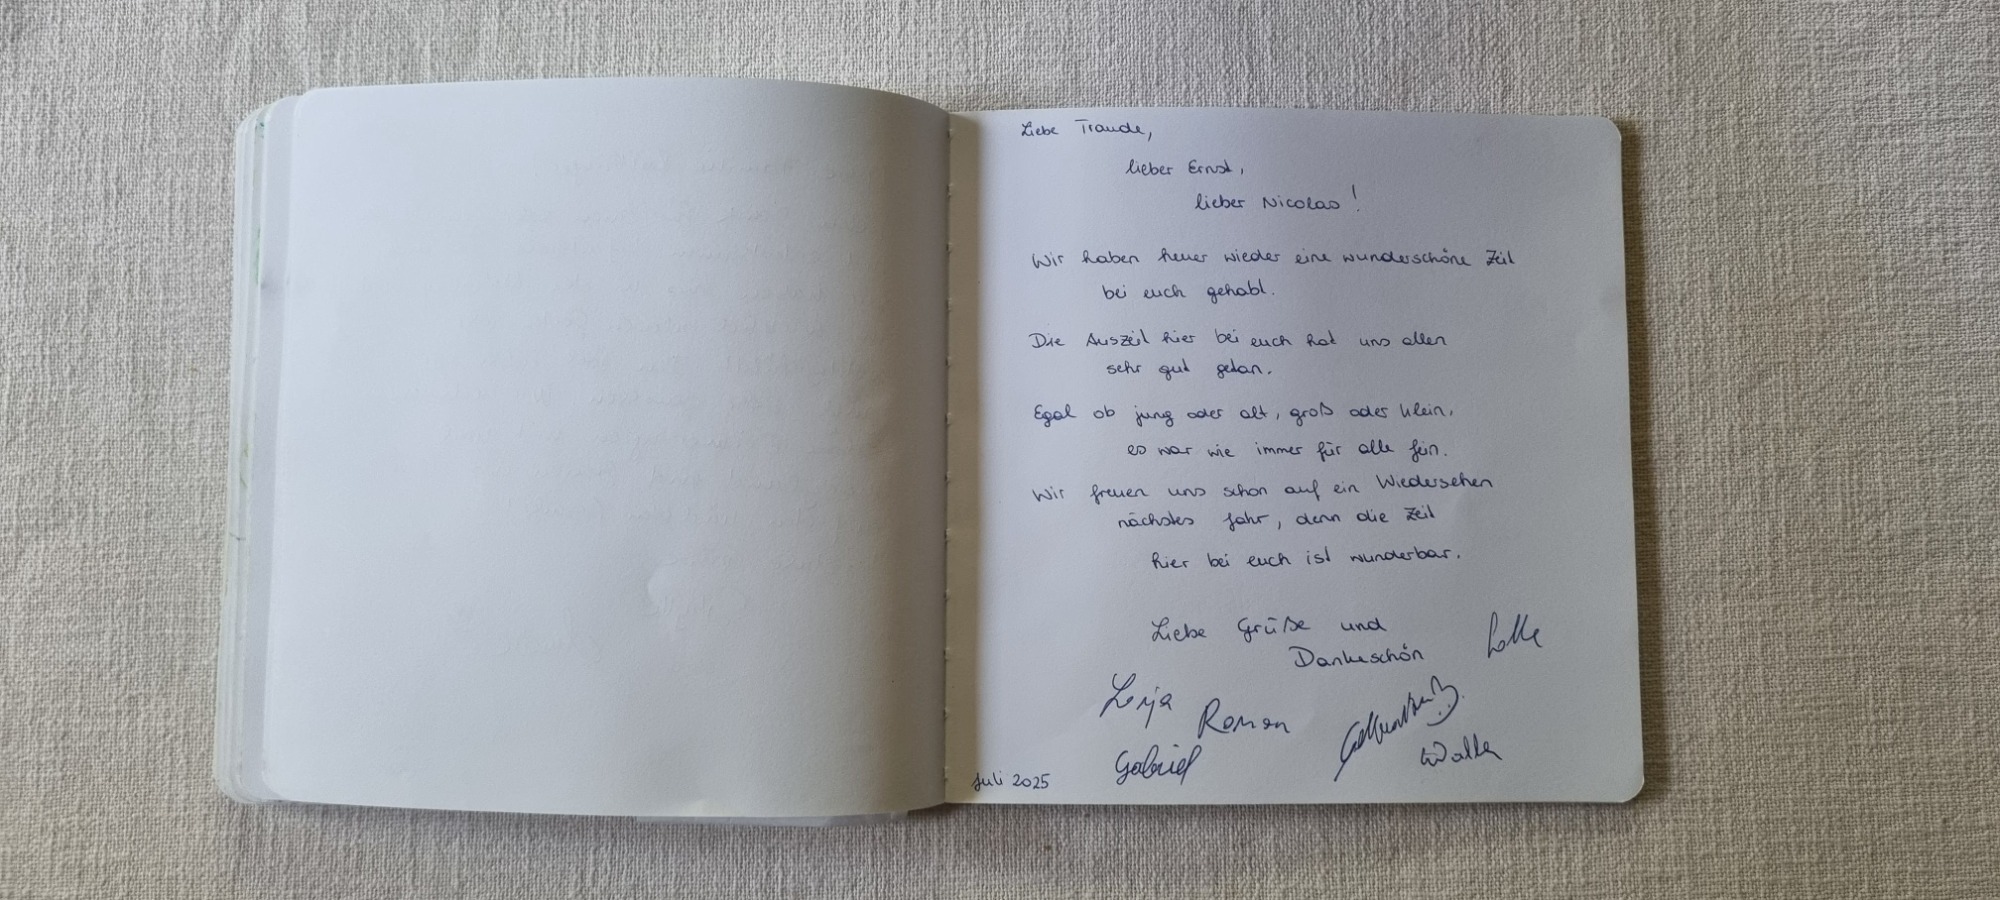 Liebe Traude,
lieber Ernst,
lieber Nicolas!
Wir haben heuer wieder eine wunderschöne Zeit
bei euch gehabt.
Die Auszeit hier bei euch hat uns allen
sehr gut getan.
Egal ob jung oder alt, groß oder klein,
es war wie immer für alle fein.
Wir freuen uns schon auf ein Wiedersehen
nächstes Jahr, denn die Zeit
hier bei euch ist wunderbar.
Liebe Grüße und
Dankeschön
Roman
Gabriel
Juli 2025